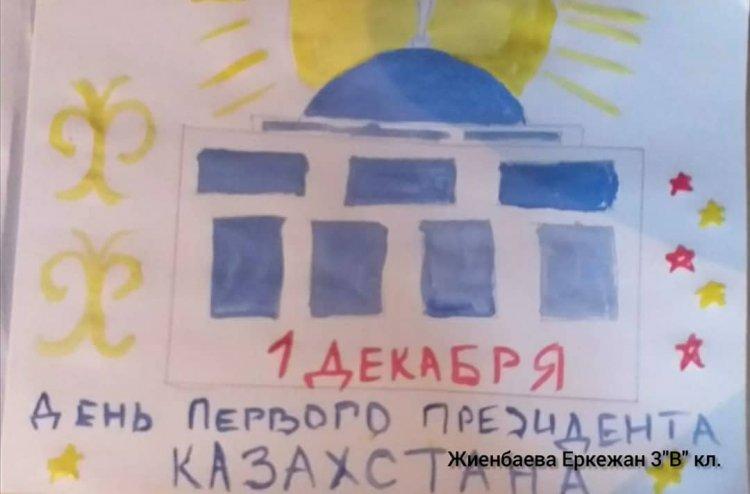 1 ДЕКАБРЯ
ДЕНЬ ПЕРВОГО ПРЕЗИДЕНТА
КАЗАХСТАНА
Жиенбаева Еркежан 3"В" кл.